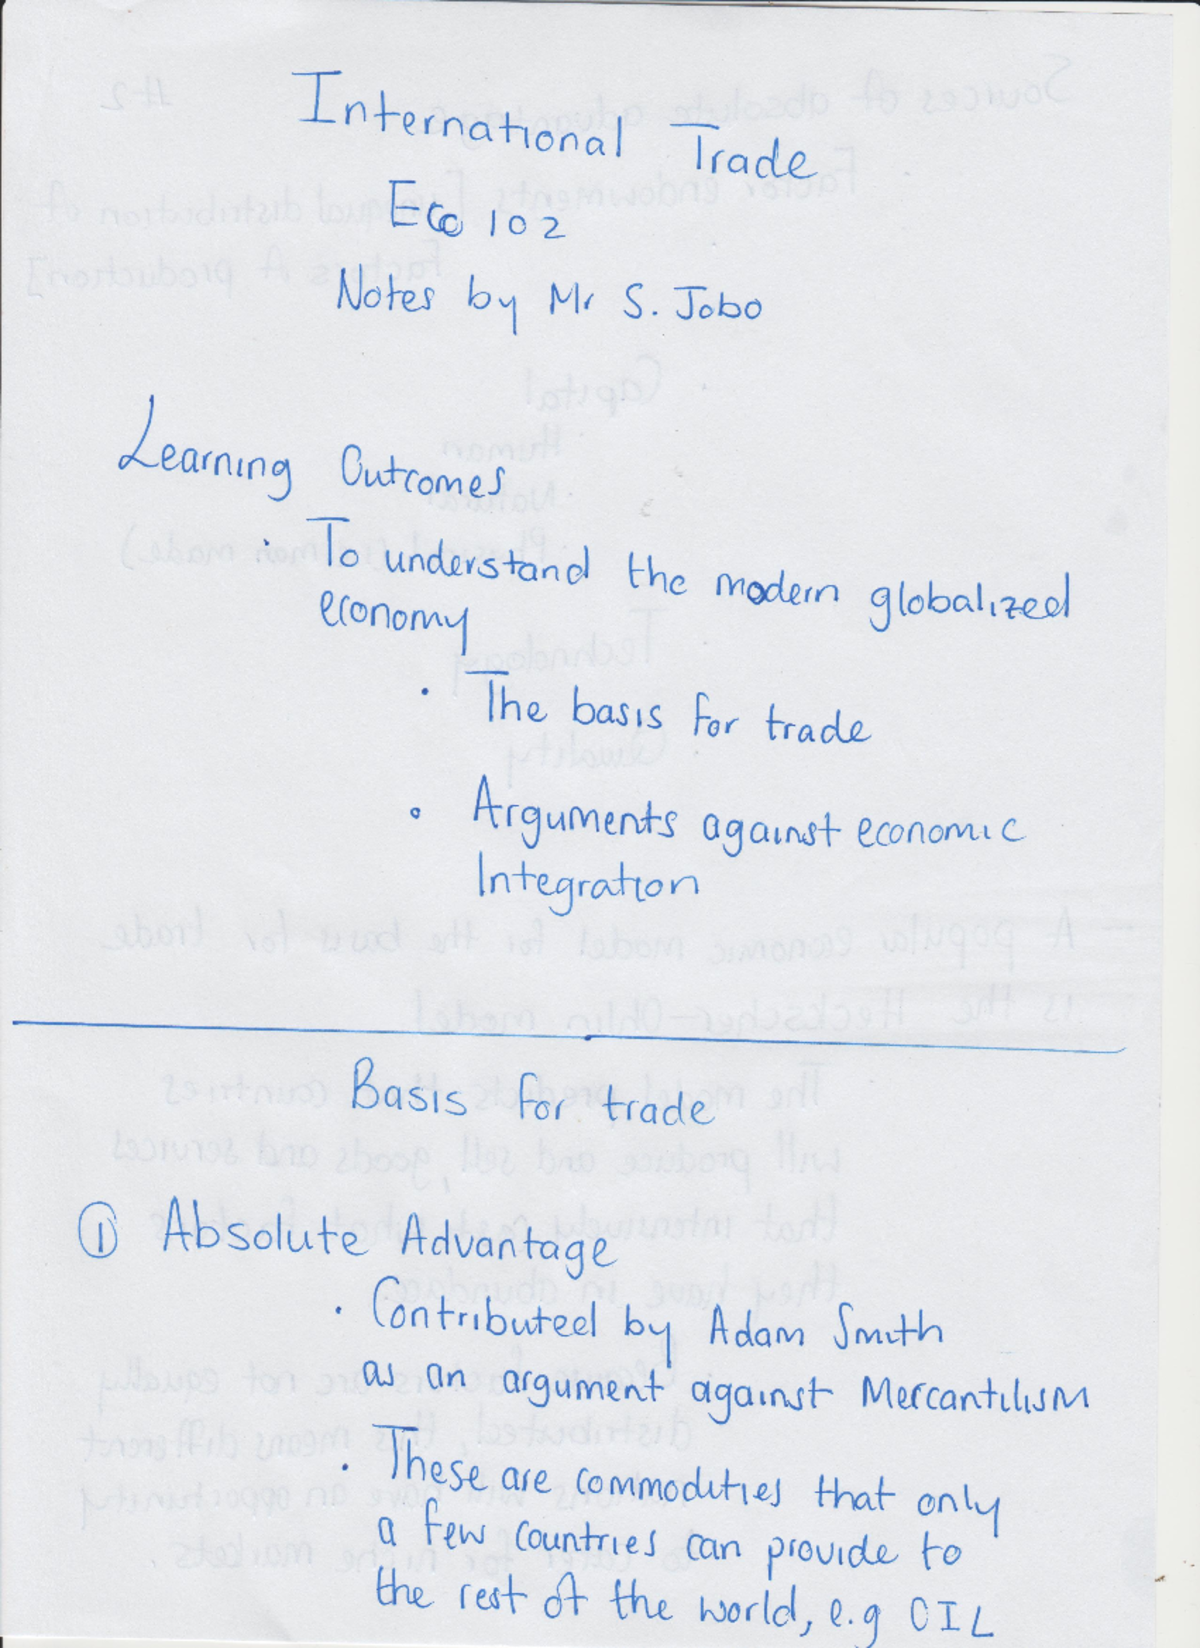 International Trade
Eco 102
Notes by Mr S. Jobo
Learning Outcomes
· To understand the modern globalized
economy
· The basis for trade
∘ Arguments against economic
Integration
Basis for trade
① Absolute Advantage
· Contributed by Adam Smith
as an argument against Mercantilism
· These are commodities that only
a few countries can provide to
the rest of the world, e.g OIL